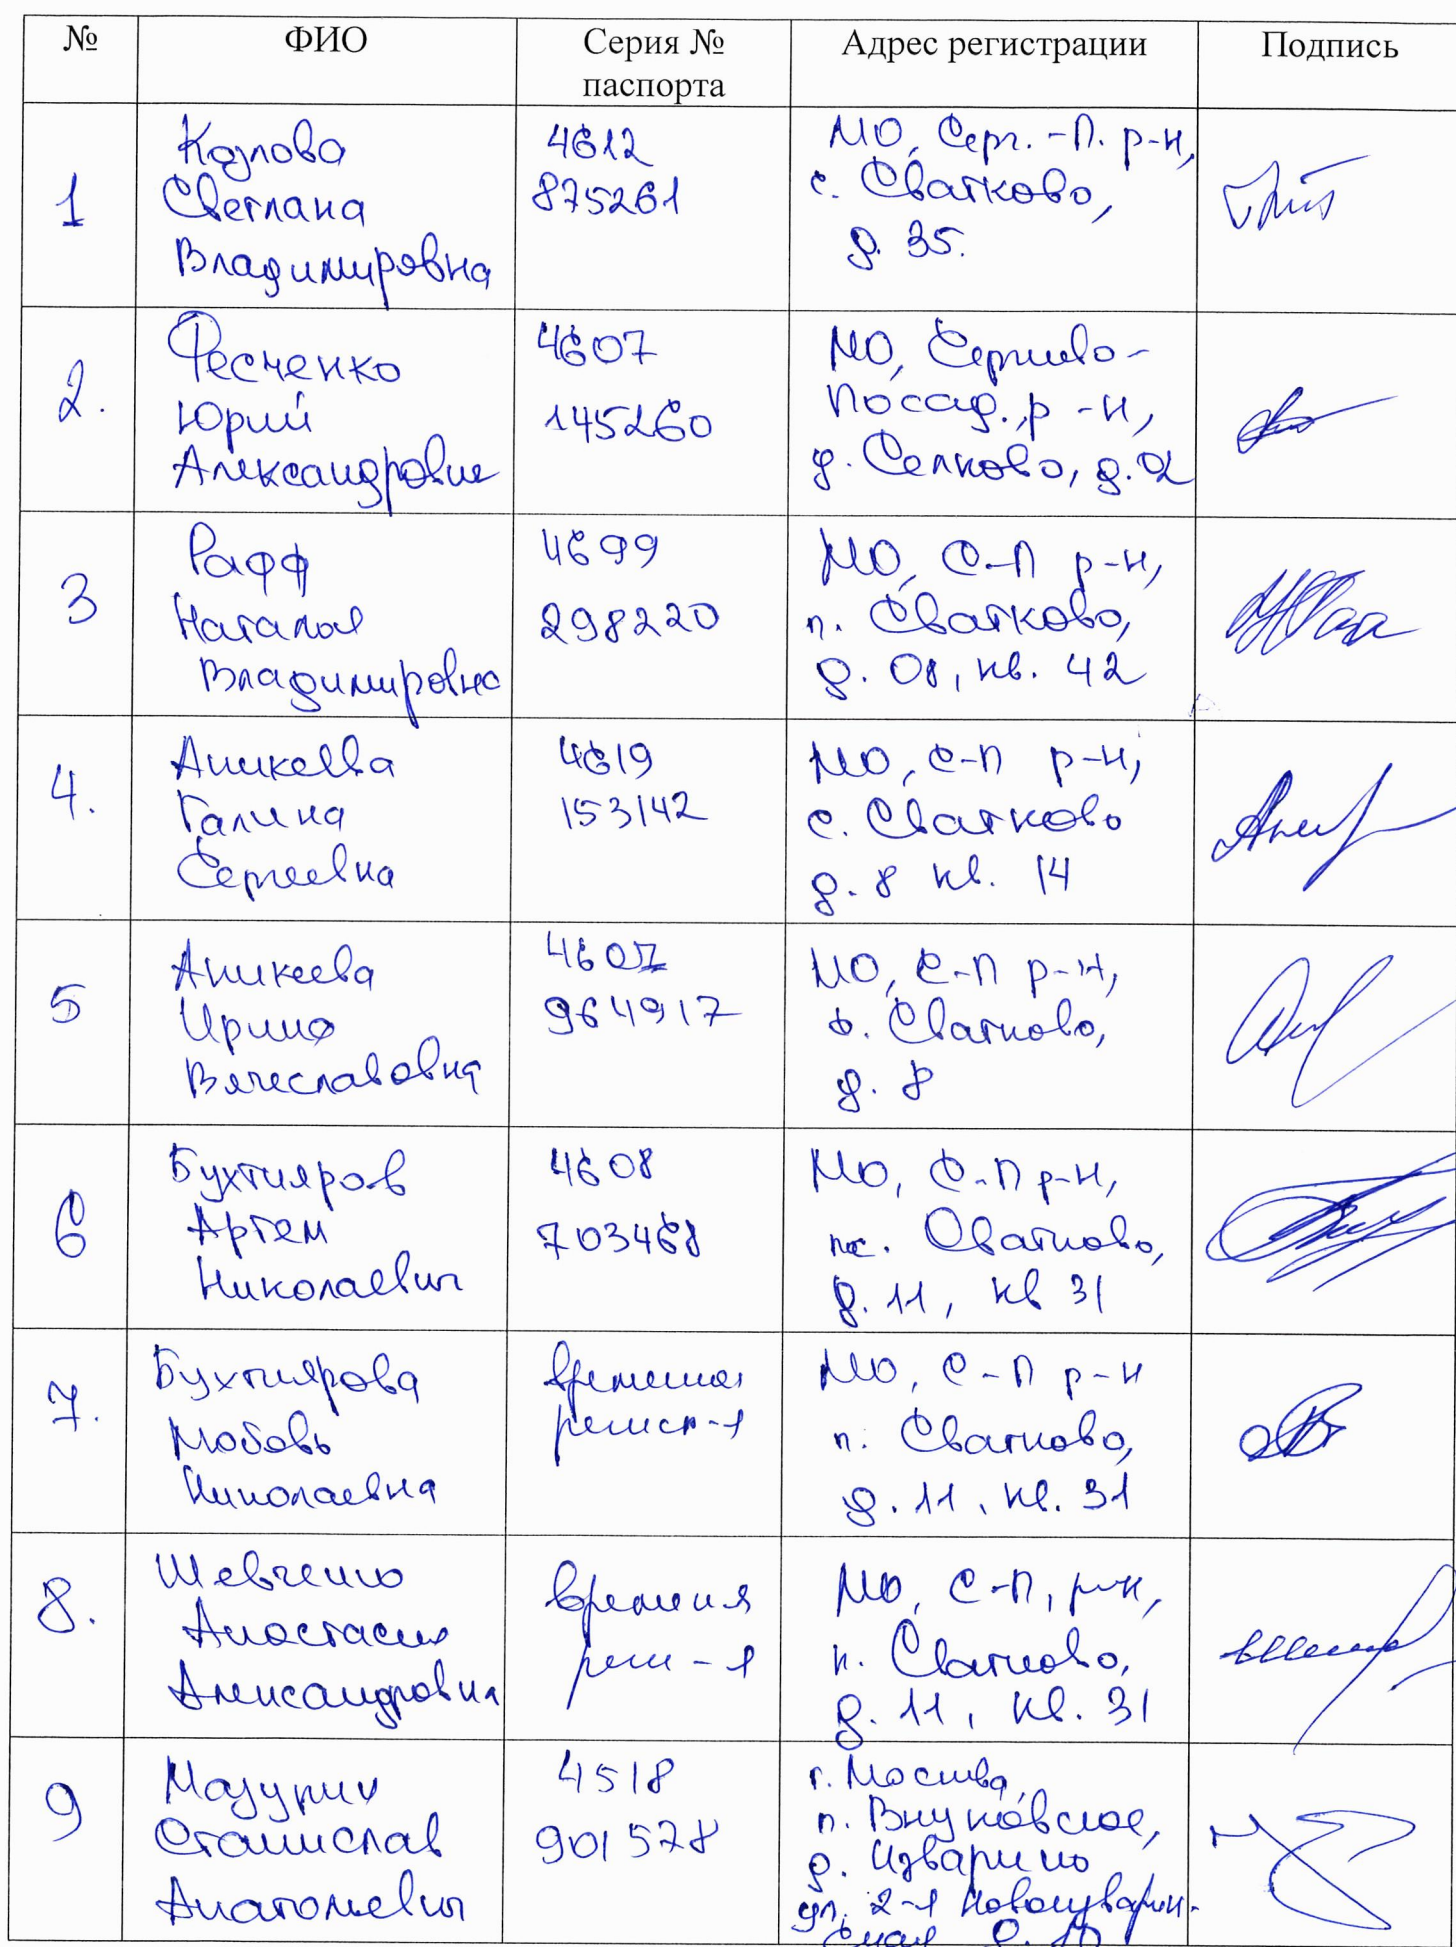 № ФИО Серия № паспорта Адрес регистрации Подпись
1
Козлова
Светлана
Владимировна
4612
875261
МО, Серг.-П. р-н,
с. Сватково,
д. 35.
2.
Фесченко
Юрий
Александрович
4607
145260
МО, Сергиево-
Посад., р-н,
д. Селково, д. 2
3
Рафф
Наталья
Владимировна
4699
298220
МО, С-П р-н,
п. Сватково,
д. 08, кв. 42
4.
Аникеева
Галина
Сергеевна
4619
153142
МО, С-П р-н,
с. Сватково
д. 8 кв. 14
5
Аникеева
Ирина
Вячеславовна
4607
964917
МО, С-П р-н,
Сватково,
д. 8
6
Бухтияров
Артем
Николаевич
4608
703468
МО, С-П р-н,
пос. Сватково,
д. 11, кв 31
7.
Бухтиярова
Любовь
Николаевна
МО, С-П р-н
п. Сватково,
д. 11, кв. 31
8.
Шевченко
Анастасия
Александровна
МО, С-П, р-н,
п. Сватково,
д. 11, кв. 31
9
Мазурин
Станислав
Анатольевич
4518
901578
г. Москва,
п. Внуковское,
д. Изварино
ул. 2-я Новоизварин-
ская д.